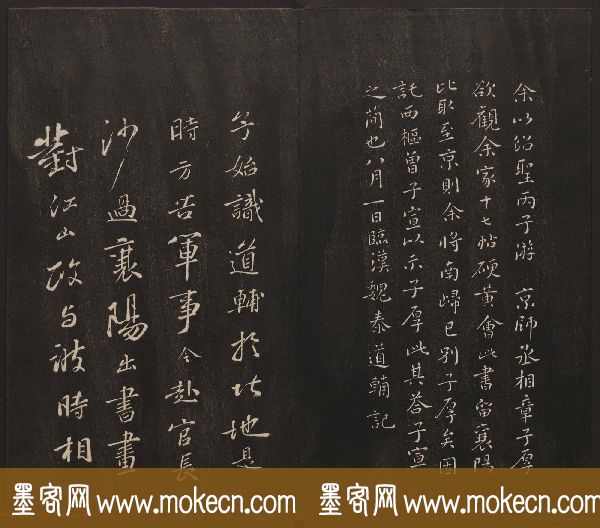 余以紹聖丙子游 京師丞相章子厚
欲觀余家十七帖硬黃會此書留襄陽
比取至京則余將南歸已別子厚矣因
託兩樞曾子宣以示子厚此其答子宣
之簡也八月一日臨漢魏泰道輔記
予始識道輔於此地是
時方苦軍事今赴官長
沙過襄陽出書畫
對江山改与波時相
墨客网 www.mokecn.com 墨客网 www.mokecn.com